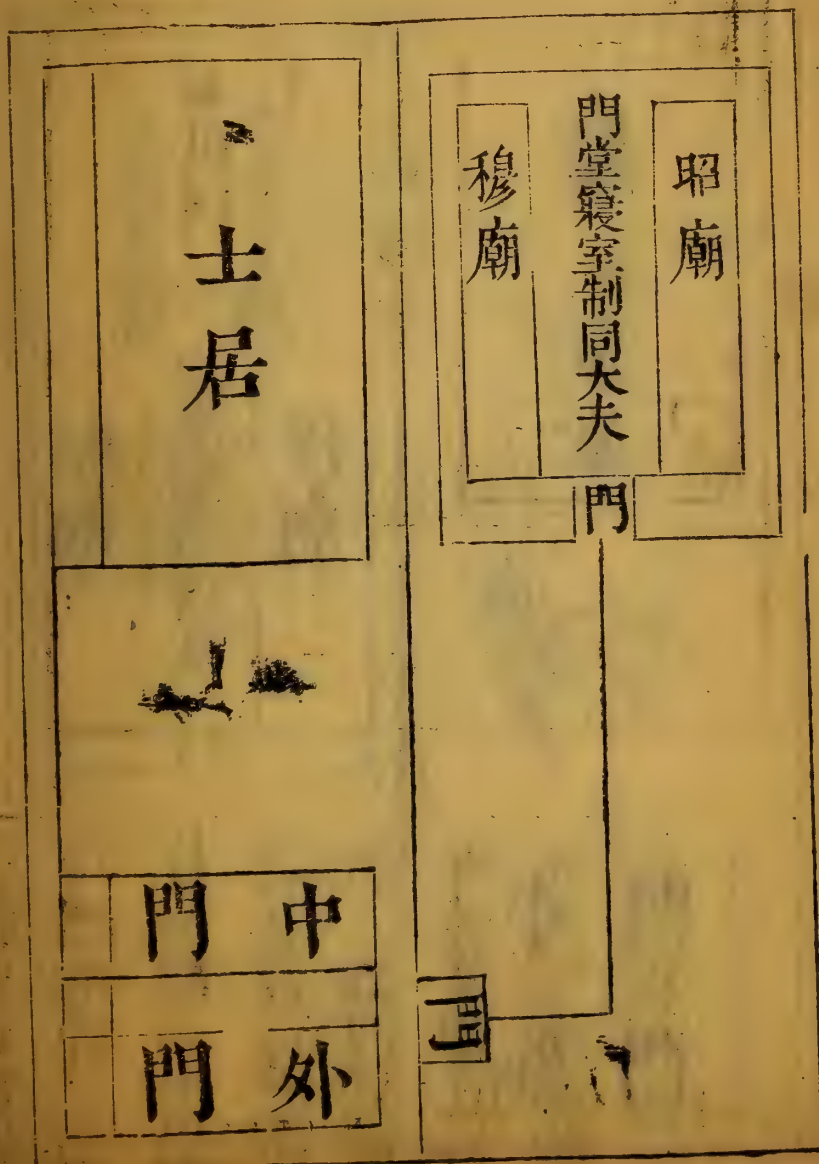 昭廟
門堂寢室制同大夫
穆廟
門
門
士居
中門
外門